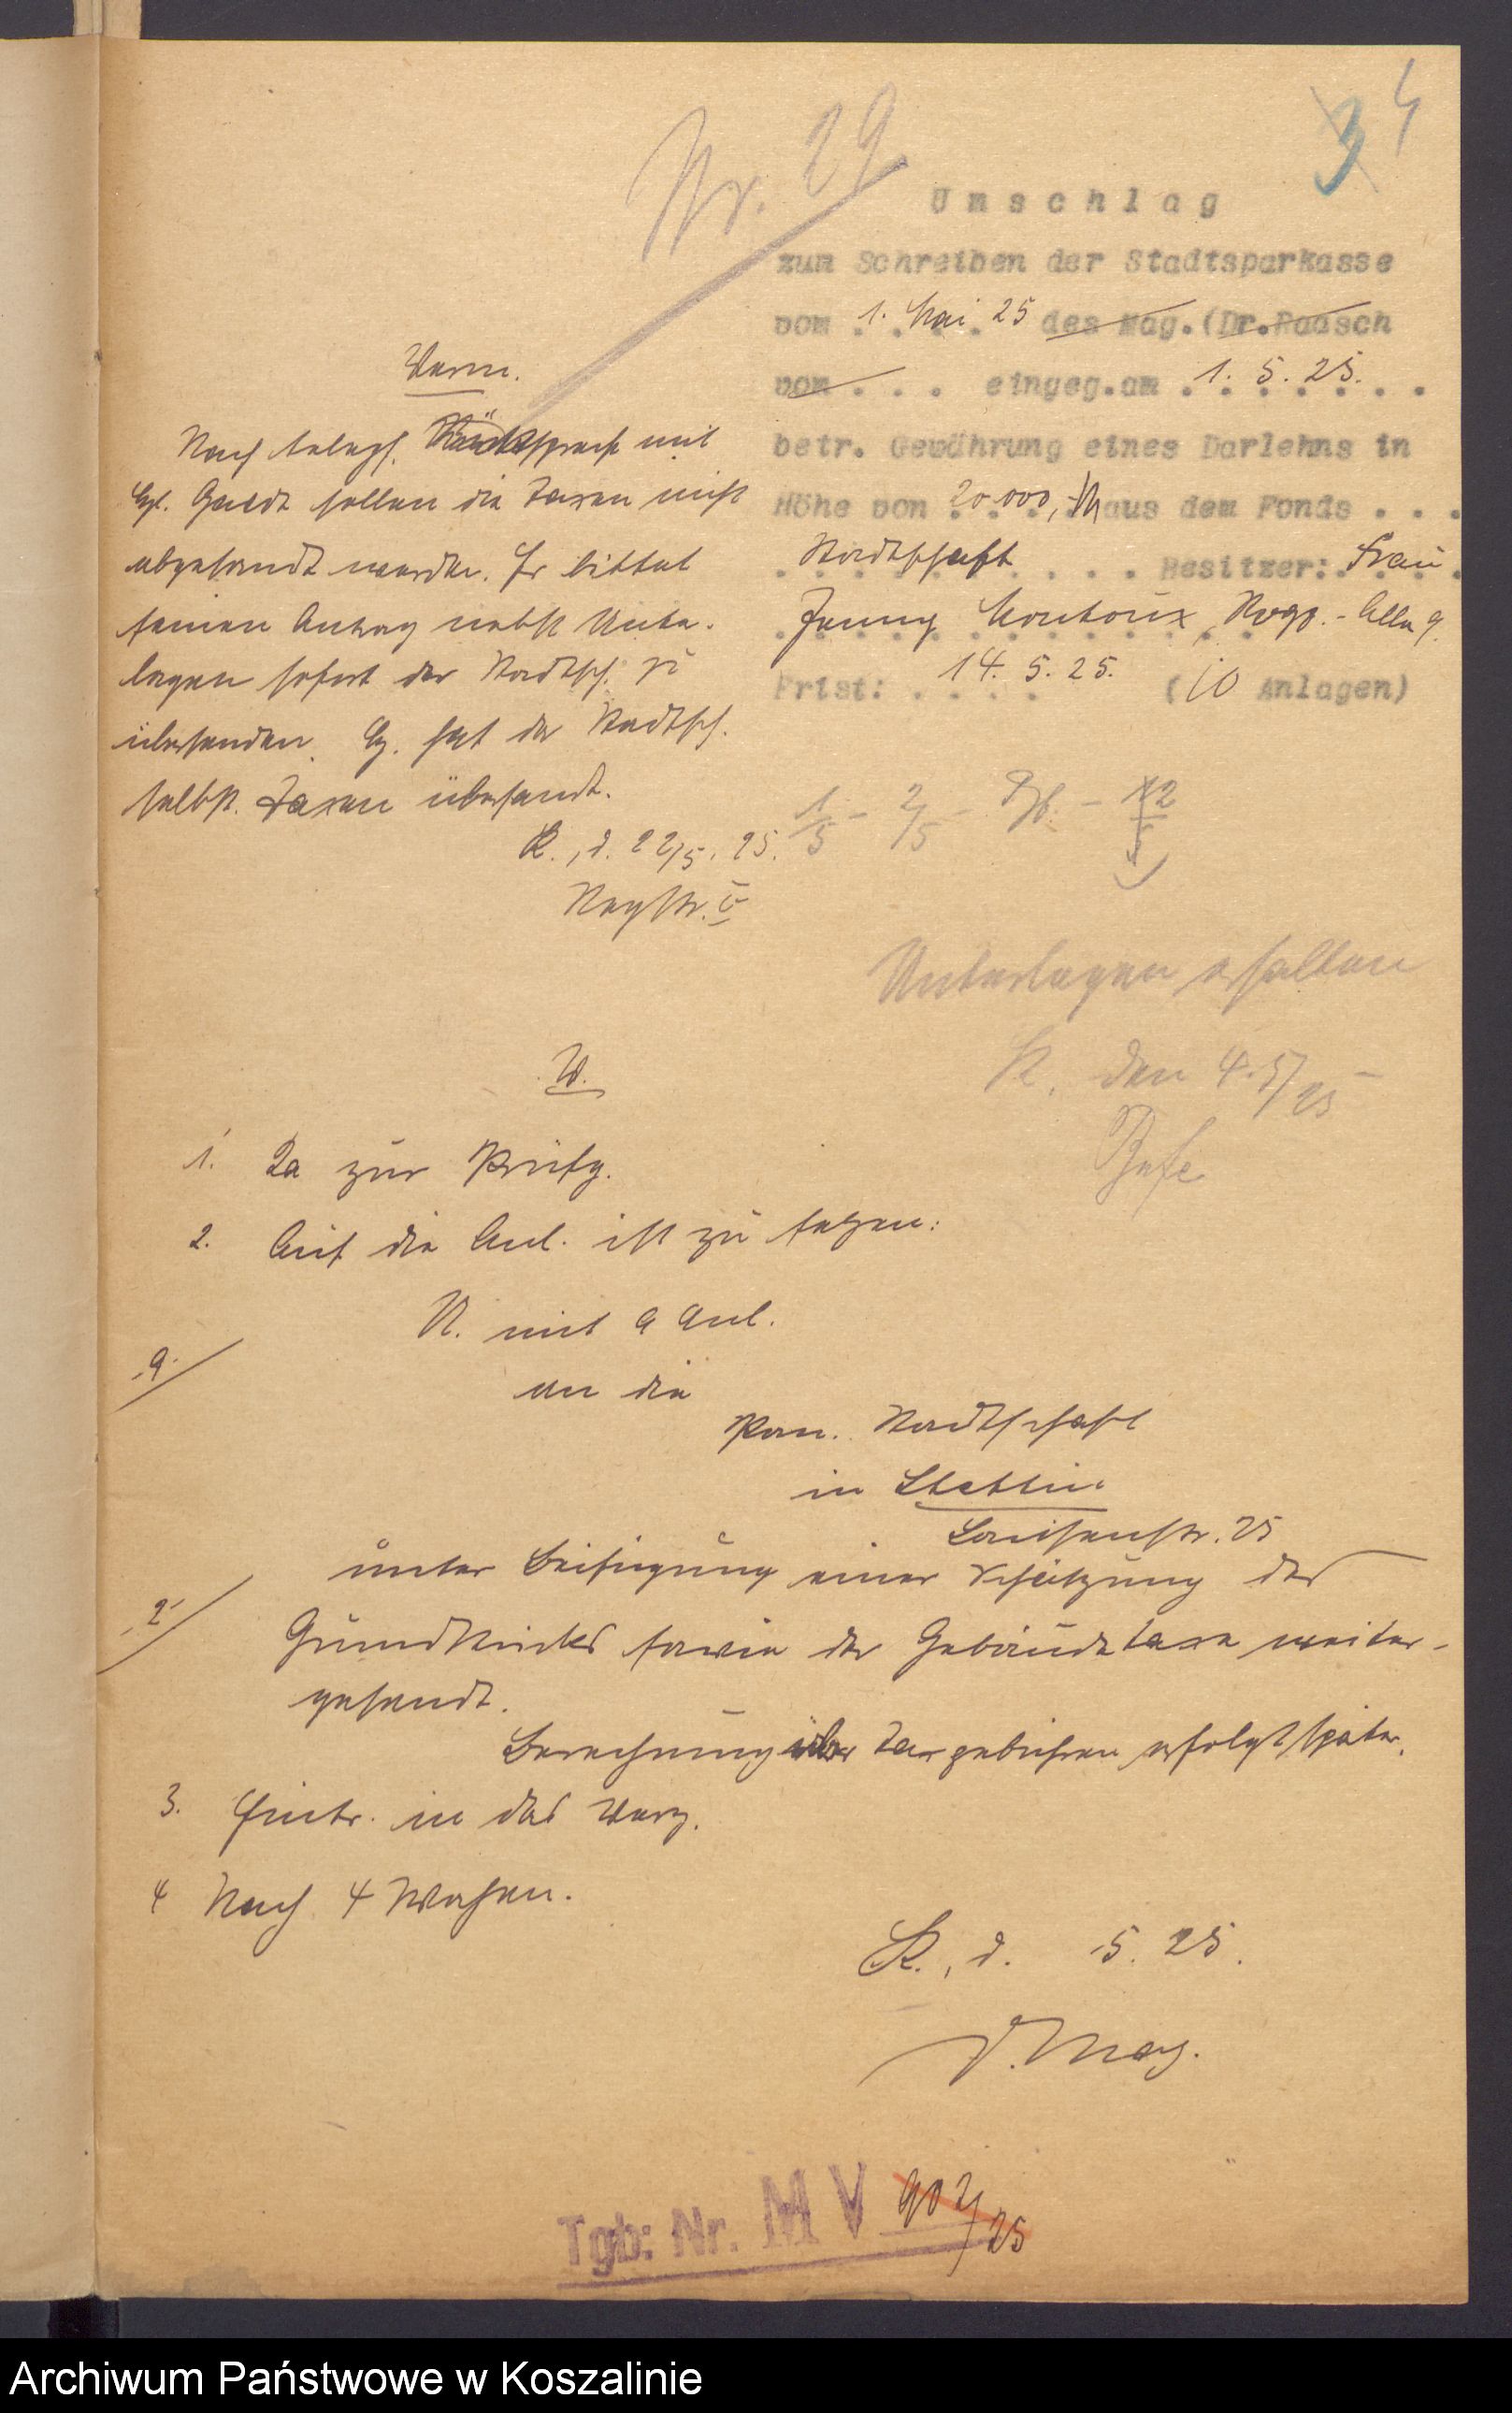 Nr. 29
3 4
Umschlag
zum Schreiben der Stadtsparkasse
vom 1. Mai 25 des Mag. (Dr. Raasch
vom . . . eingeg.am 1. 5. 25.
betr. Gewährung eines Darlehns in
Höhe von 20.000,- M aus dem Fonds . . .
Stadtschaft Besitzer: Frau
Jenny Rogz.- Allee 9.
Frist: 14. 5. 25. (10 Anlagen)
Verm.
Nach teleph. Rücksprache mit
sollen die Taxen nicht
abgesandt werden. Er bittet
seinen Antrag nebst Unter-
lagen sofort der Stadtsch. zu
übersenden. G. hat der Stadtsch.
selbst Taxen übersandt.
K., d. 22/5. 25.
Registr. V
1/5 - 2/5 -
Unterlagen erhalten
K. den 4.5/25
V.
1. zur Prüfg.
2. Auf die Anl. ist zu setzen:
U. mit 9 Anl.
an die
Pom. Stadtschaft
in Stettin
Louisenstr. 25
unter Beifügung einer Schätzung des
Grundstücks sowie der Gebäudetaxe weiter-
gesandt.
Berechnung über Taxgebühren erfolgt später.
9
2
3. Eintr. in das Verz.
4 Nach 4 Wochen.
K., d. 5. 25.
D. Mag.
Tgb: Nr. M V 902/25
Archiwum Państwowe w Koszalinie